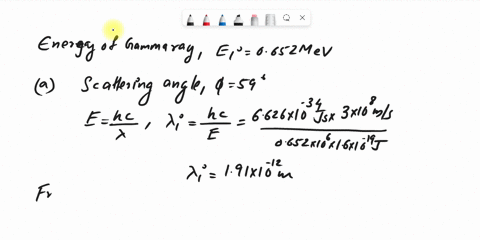 Energy of Gammaray, Ei° = 0.652 MeV
(a) Scattering angle, ϕ = 59°
E = hc/λ, λi° = hc/E = 6.626×10^-34 Js × 3×10^8 m/s / 0.652×10^6×1.6×10^-19 J
λi° = 1.91×10^-12 m
Fr